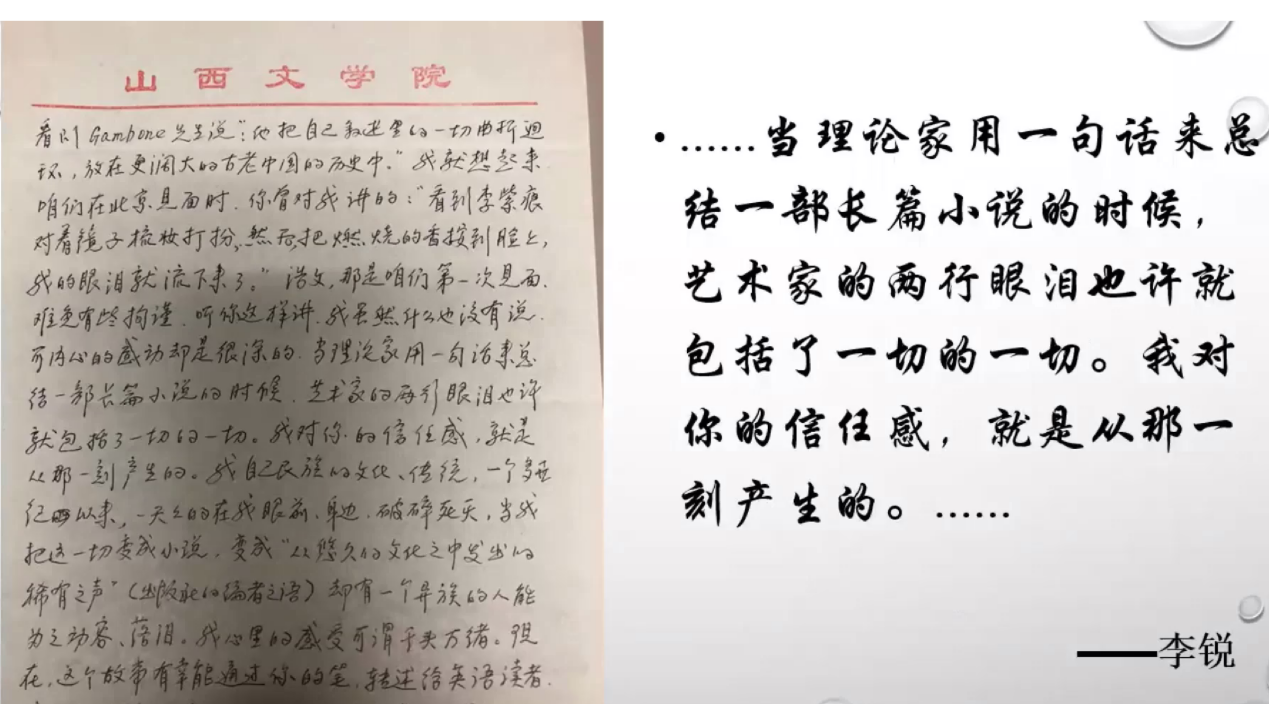 山西文学院
看到Gambone先生说:"他把自己叙述里的一切曲折迴
环,放在更阔大的古老中国的历史中。"我就想起来
咱们在北京见面时,你曾对我讲的:"看到李紫痕
对着镜子梳妆打扮,然后把燃烧的香按到脸上,
我的眼泪就流下来了。"浩文,那是咱们第一次见面,
难免有些拘谨,听你这样讲,我虽然什么也没有说,
可内心的感动却是很深的。当理论家用一句话来总
结一部长篇小说的时候,艺术家的两行眼泪也许
就包括了一切的一切。我对你的信任感,就是
从那一刻产生的。我自己民族的文化、传统,一个多世
纪以来,一天天的在我眼前、身边,破碎死灭,当我
把这一切变成小说,变成"从悠久的文化之中发出的
稀有之声"(出版社的编者之语)却有一个异族的人能
为之动容、落泪。我心里的感受可谓千头万绪。现
在,这个故事有幸能通过你的笔,转述给英语读者,
•……当理论家用一句话来总
结一部长篇小说的时候,
艺术家的两行眼泪也许就
包括了一切的一切。我对
你的信任感,就是从那一
刻产生的。……
——李锐